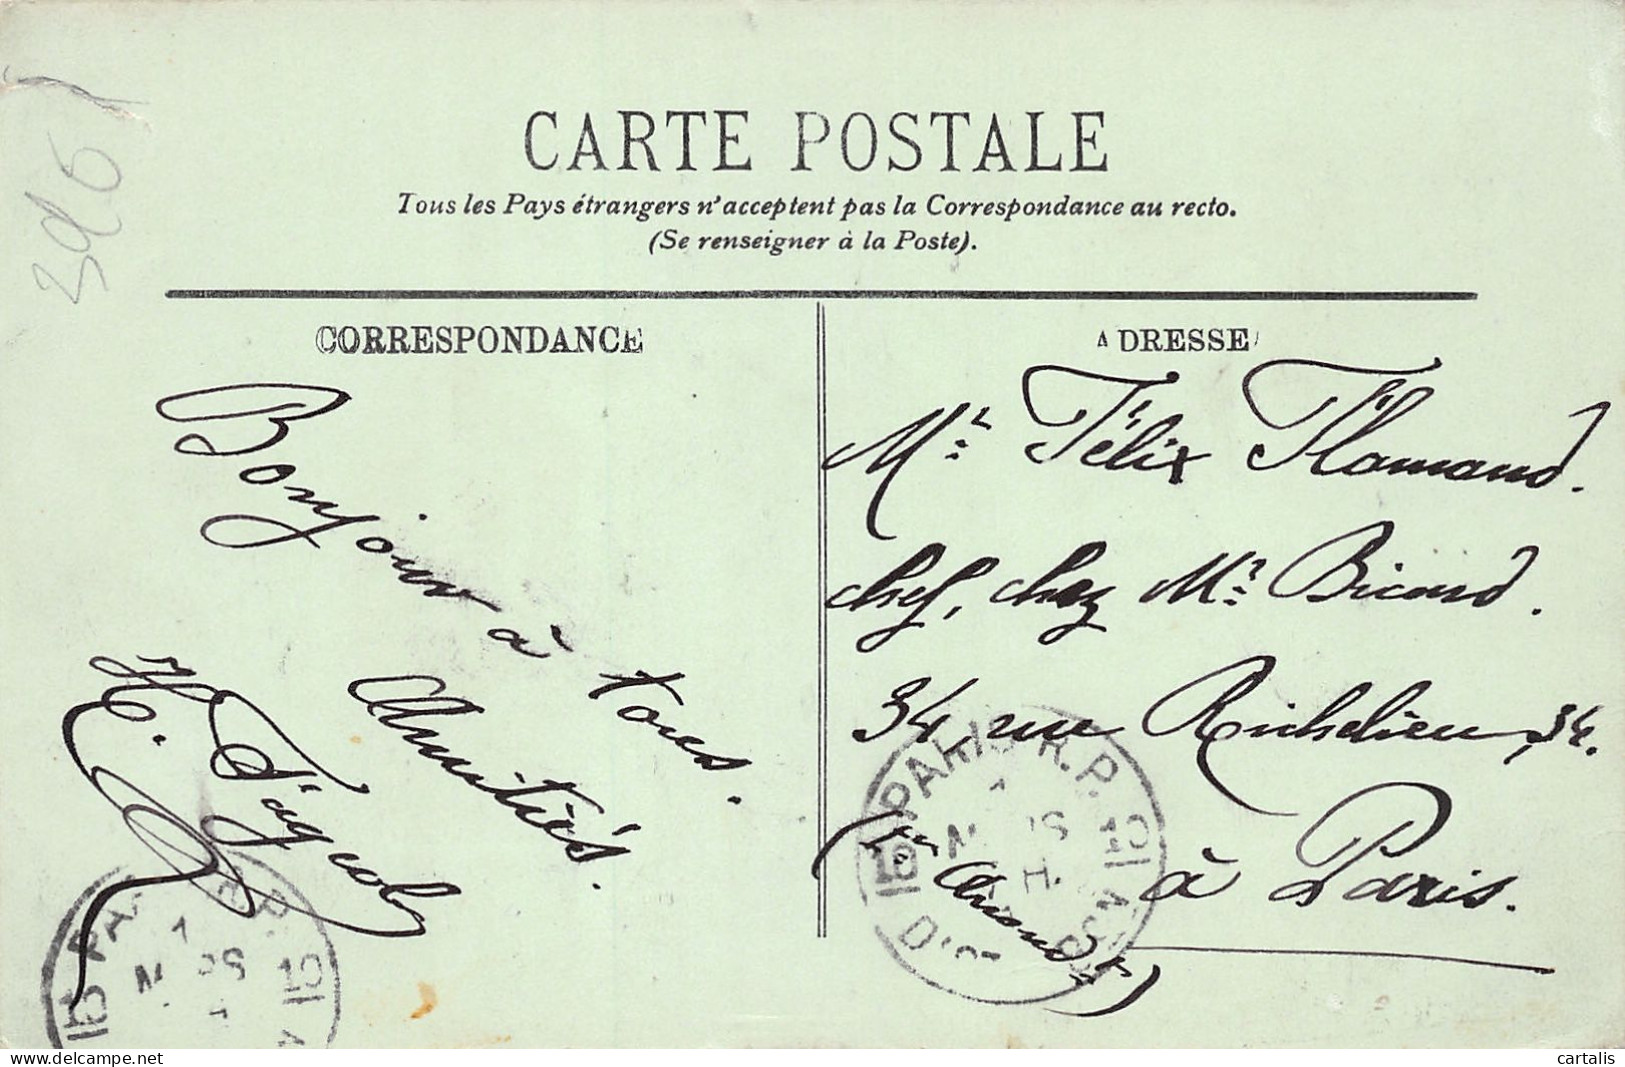 CARTE POSTALE
Tous les Pays étrangers n'acceptent pas la Correspondance au recto.
(Se renseigner à la Poste).
CORRESPONDANCE
Bonjour à tous.
Amitiés.
H.
ADRESSE
Mr Félix Flamand.
chef, chez Mr Bicard.
34, rue Richelieu, 34.
à Paris.
(1er
PARIS R.P.
MARS
DISTRION
www.delcampe.net
cartalis